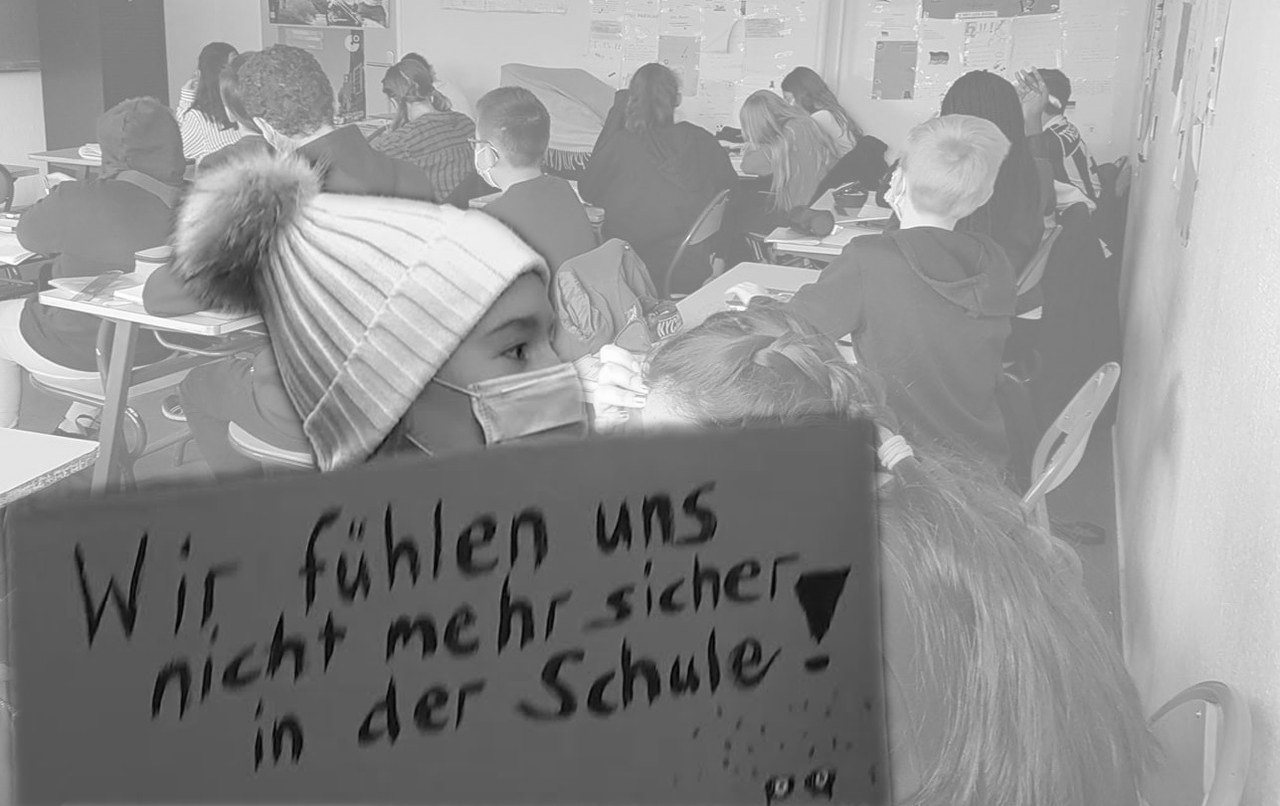 Wir fühlen uns
nicht mehr sicher
in der Schule!
NYC